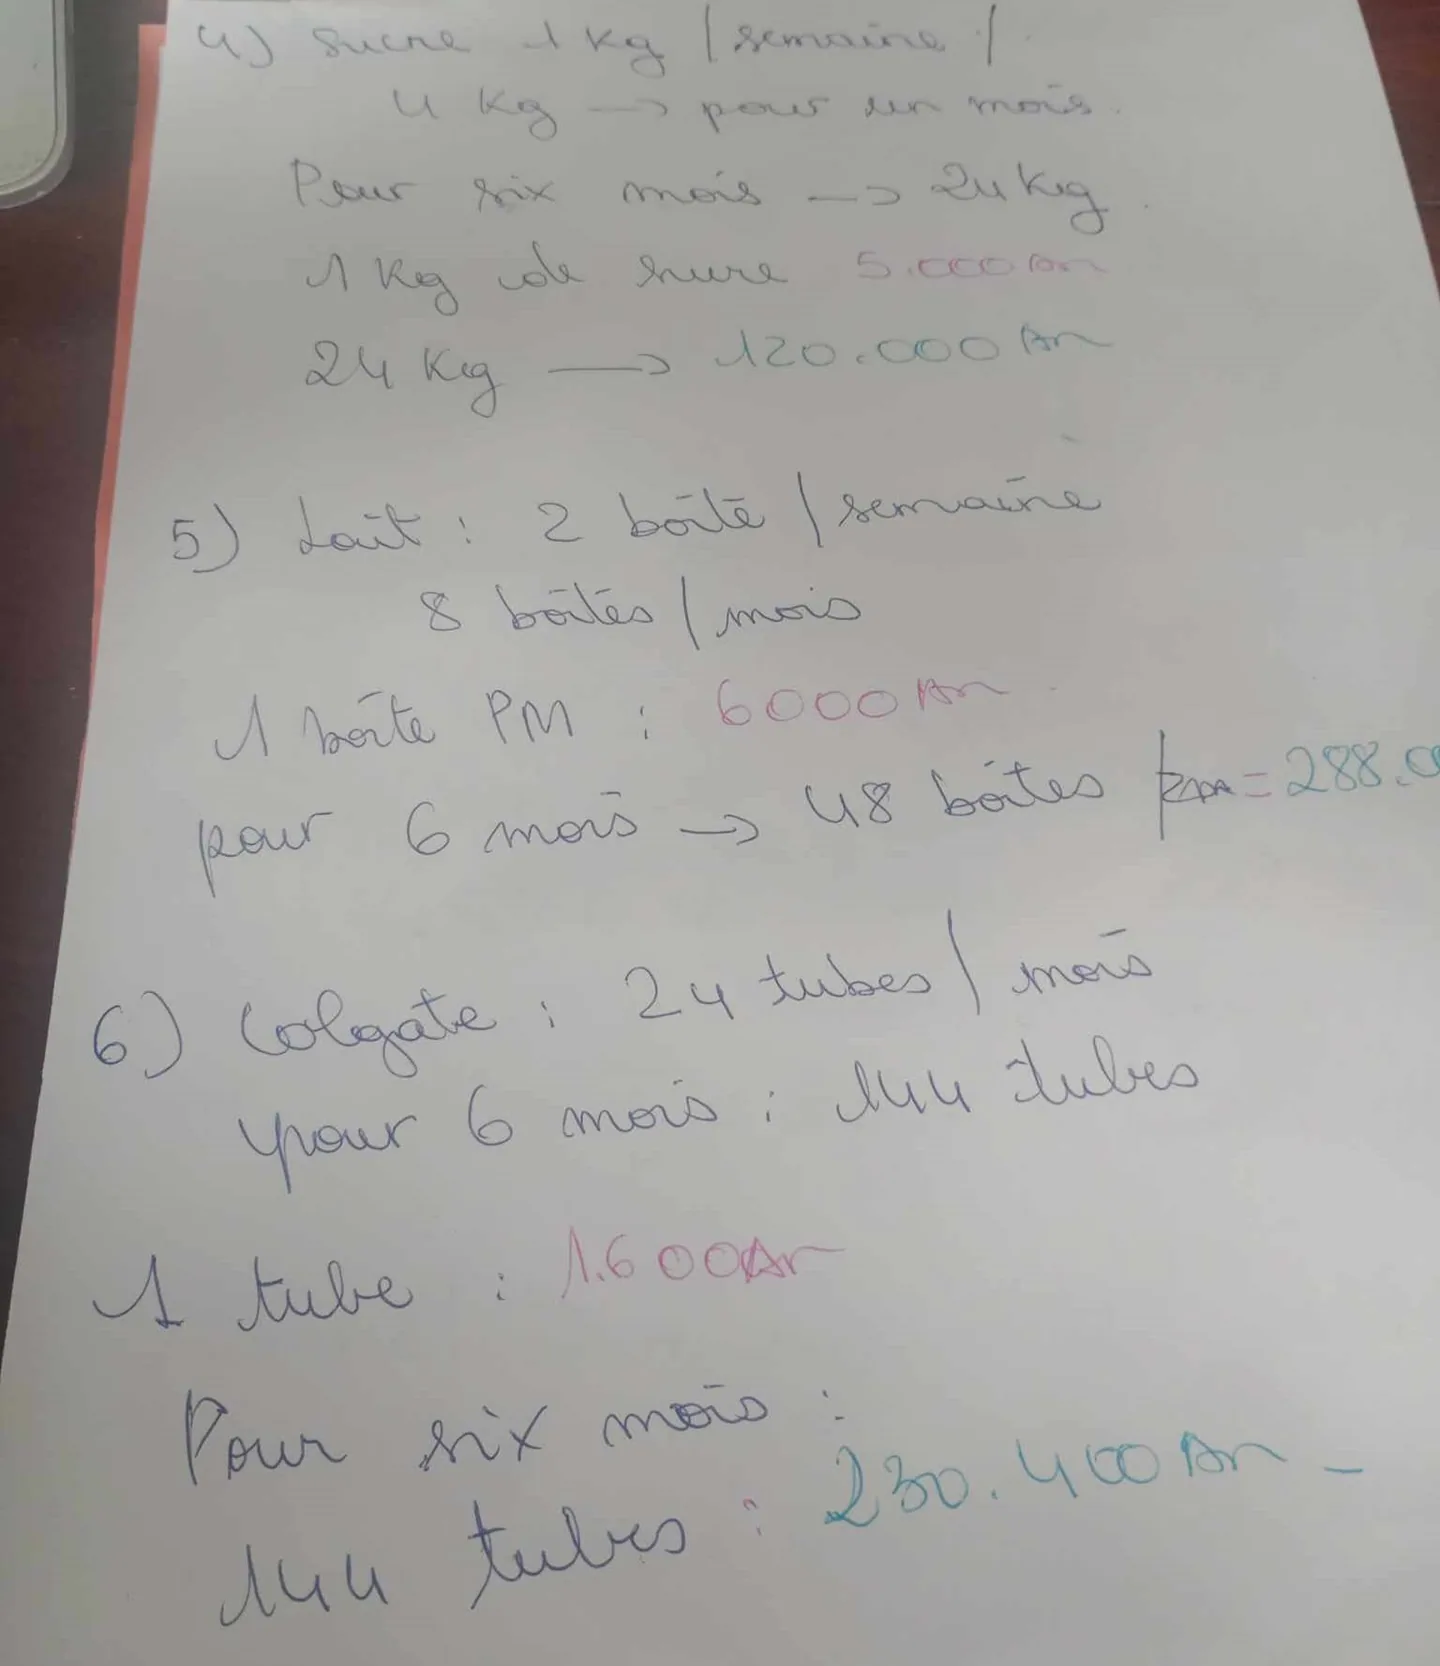 4) Sucre 1 kg / semaine /
4 Kg → pour un mois.
Pour six mois → 24 Kg.
1 Kg de sucre 5.000 Ar
24 Kg → 120.000 Ar
5) Lait : 2 boîte / semaine
8 boîtes / mois
1 boîte PM : 6000 Ar
pour 6 mois → 48 boîtes = 288.0
6) Colgate : 24 tubes / mois
pour 6 mois : 144 tubes
1 tube : 1.600 Ar
Pour six mois :
144 tubes : 230.400 Ar -